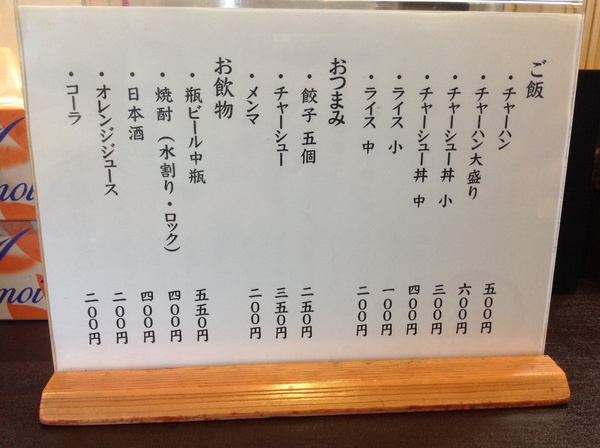 ご飯
・チャーハン 五〇〇円
・チャーハン大盛り 六〇〇円
・チャーシュー丼 小 三〇〇円
・チャーシュー丼 中 四〇〇円
・ライス 小 一〇〇円
・ライス 中 二〇〇円
おつまみ
・餃子 五個 二五〇円
・チャーシュー 三五〇円
・メンマ 二〇〇円
お飲物
・瓶ビール中瓶 五五〇円
・焼酎(水割り・ロック) 四〇〇円
・日本酒 四〇〇円
・オレンジジュース 二〇〇円
・コーラ 二〇〇円
moi
moi